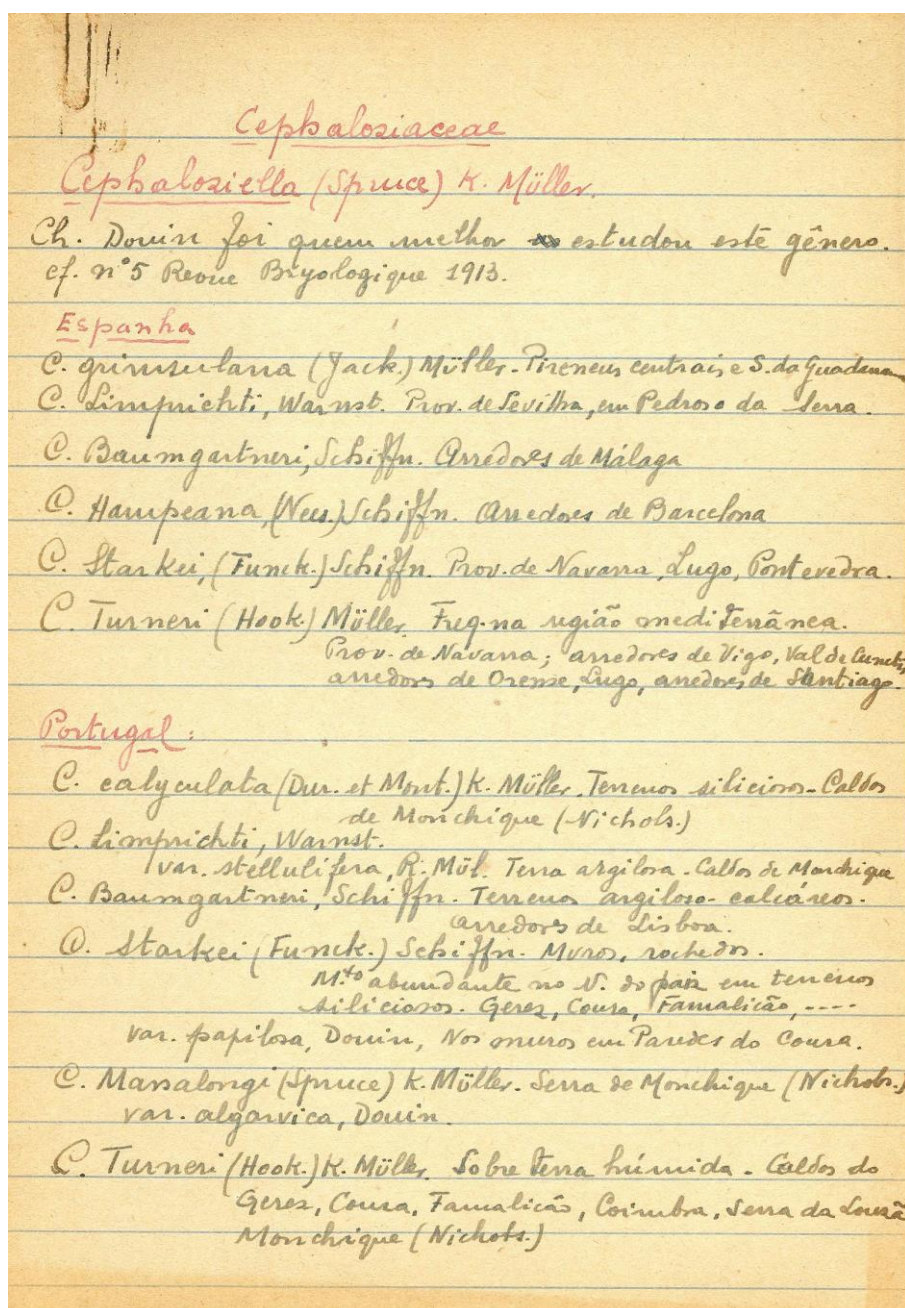 Cephaloziaceae
Cephaloziella (Spruce) K. Müller.
Ch. Douin foi quem melhor estudou este gênero.
cf. nº5 Revue Bryologique 1913.
Espanha
C. grimsulana (Jack.) Müller - Pireneus centrais e S. da Guadarrama
C. Limprichti, Warnst. Prov. de Sevilha, em Pedroso da Serra.
C. Baumgartneri, Schiffn. Arredores de Málaga
C. Hampeana, (Nees.) Schiffn. Arredores de Barcelona
C. Starkei, (Funck.) Schiffn. Prov. de Navarra, Lugo, Pontevedra.
C. Turneri (Hook.) Müller. Freq. na região mediterrânea.
Prov. de Navarra; arredores de Vigo, Val de
arredores de Orense, Lugo, arredores de Santiago.
Portugal:
C. calyculata (Dur. et Mont.) K. Müller. Terrenos siliciosos - Caldas
de Monchique (Nichols.)
C. Limprichti, Warnst.
var. stellulifera, K. Mül. Terra argilosa. Caldas de Monchique
C. Baumgartneri, Schiffn. Terrenos argiloso-calcáreos.
Arredores de Lisboa.
C. Starkei (Funck.) Schiffn. Muros, rochedos.
M.to abundante no N. do paiz em terrenos
siliciosos. Gerez, Coura, Famalicão, ----
var. papilosa, Douin, Nos muros em Paredes do Coura.
C. Massalongi (Spruce) K. Müller. Serra de Monchique (Nichols.)
var. algarvica, Douin.
C. Turneri (Hook.) K. Müller. Sobre terra húmida - Caldas do
Gerez, Coura, Famalicão, Coimbra, Serra da Lousã
Monchique (Nichols.)